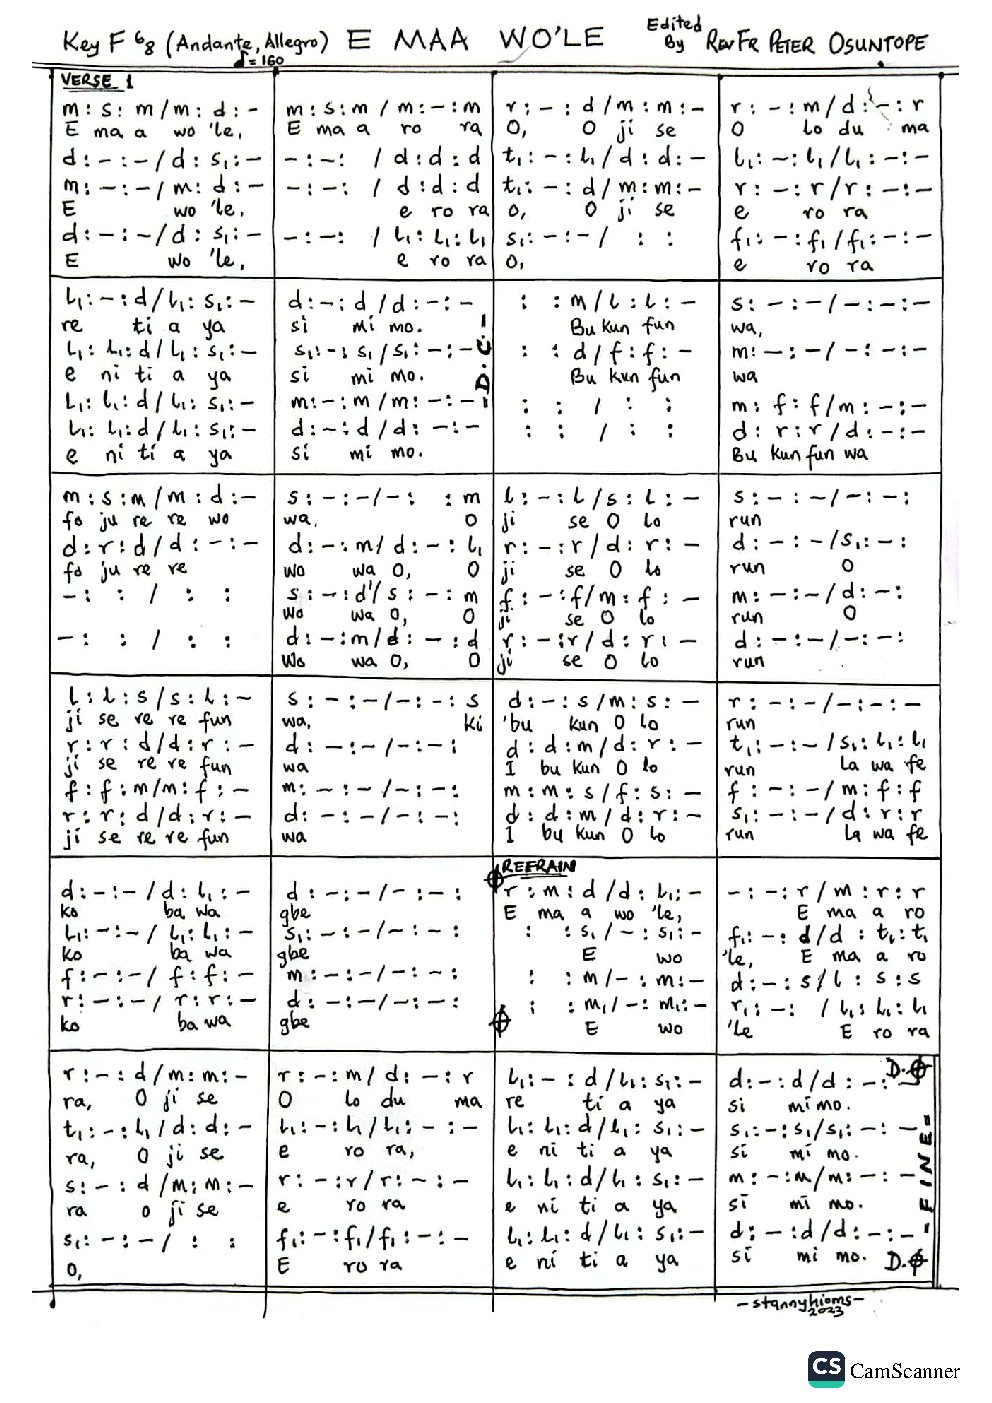 Key F 6/8 (Andante, Allegro) E MAA WO'LE Edited By Rev Fr Peter Osuntope
♩=160
VERSE 1
m : s : m / m : d : -
E ma a wo 'le,
d : - : - / d : s₁ : -
m : - : - / m : d : -
E wo 'le,
d : - : - / d : s₁ : -
E wo 'le,
m : s : m / m : - : m
E ma a ro ra
- : - : / d : d : d
- : - : / d : d : d
e ro ra
- : - : / l₁ : l₁ : l₁
e ro ra
r : - : d / m : m : -
O, O ji se
t₁ : - : l₁ / d : d : -
t₁ : - : d / m : m : -
O, O ji se
s₁ : - : - / : :
O,
r : - : m / d : - : r
O lo du ma
l₁ : - : l₁ / l₁ : - : -
r : - : r / r : - : -
e ro ra
f₁ : - : f₁ / f₁ : - : -
e ro ra
l₁ : - : d / l₁ : s₁ : -
re ti a ya
l₁ : l₁ : d / l₁ : s₁ : -
e ni ti a ya
l₁ : l₁ : d / l₁ : s₁ : -
l₁ : l₁ : d / l₁ : s₁ : -
e ni ti a ya
d : - : d / d : - : -
si mi mo.
s₁ : - : s₁ / s₁ : - : -
si mi mo.
m : - : m / m : - : -
d : - : d / d : - : -
si mi mo.
-D.C.-
: : m / l : l : -
Bu kun fun
: : d / f : f : -
Bu kun fun
: : / : :
: : / : :
s : - : - / - : - : -
wa,
m : - : - / - : - : -
wa
m : f : f / m : - : -
d : r : r / d : - : -
Bu kun fun wa
m : s : m / m : d : -
fo ju re re wo
d : r : d / d : - : -
fo ju re re
- : : / : :
- : : / : :
s : - : - / - : : m
wa, O
d : - : m / d : - : l₁
wo wa O, O
s : - : d' / s : - : m
wo wa O, O
d : - : m / d : - : d
wo wa O, O
l : - : l / s : l : -
ji se O lo
r : - : r / d : r : -
ji se O lo
f : - : f / m : f : -
ji se O lo
r : - : r / d : r : -
ji se O lo
s : - : - / - : - :
run
d : - : - / s₁ : - :
run O
m : - : - / d : - :
run O
d : - : - / - : - :
run
l : l : s / s : l : -
ji se re re fun
r : r : d / d : r : -
ji se re re fun
f : f : m / m : f : -
r : r : d / d : r : -
ji se re re fun
s : - : - / - : - : s
wa, Ki
d : - : - / - : - :
wa
m : - : - / - : - :
d : - : - / - : - :
wa
d : - : s / m : s : -
'bu kun O lo
d : d : m / d : r : -
I bu kun O lo
m : m : s / f : s : -
d : d : m / d : r : -
I bu kun O lo
r : - : - / - : - : -
run
t₁ : - : - / s₁ : l₁ : l₁
run la wa fe
f : - : - / m : f : f
s₁ : - : - / d : r : r
run la wa fe
d : - : - / d : l₁ : -
ko ba wa
l₁ : - : - / l₁ : l₁ : -
ko ba wa
f : - : - / f : f : -
r : - : - / r : r : -
ko ba wa
d : - : - / - : - :
gbe
s₁ : - : - / - : - :
gbe
m : - : - / - : - :
d : - : - / - : - :
gbe
REFRAIN
r : m : d / d : l₁ : -
E ma a wo 'le,
: : s₁ / - : s₁ : -
E wo
: : m / - : m : -
: : m₁ / - : m₁ : -
E wo
- : - : r / m : r : r
E ma a ro
f₁ : - : d / d : t₁ : t₁
'le, E ma a ro
d : - : s / l : s : s
r₁ : - : / l₁ : l₁ : l₁
'le E ro ra
r : - : d / m : m : -
ra, O ji se
t₁ : - : l₁ / d : d : -
ra, O ji se
s : - : d / m : m : -
ra o ji se
s₁ : - : - / : :
O,
r : - : m / d : - : r
O lo du ma
l₁ : - : l₁ / l₁ : - : -
e ro ra,
r : - : r / r : - : -
e ro ra
f₁ : - : f₁ / f₁ : - : -
E ro ra
l₁ : - : d / l₁ : s₁ : -
re ti a ya
l₁ : l₁ : d / l₁ : s₁ : -
e ni ti a ya
l₁ : l₁ : d / l₁ : s₁ : -
e ni ti a ya
l₁ : l₁ : d / l₁ : s₁ : -
e ni ti a ya
D.𝄌
d : - : d / d : - : -
si mi mo.
s₁ : - : s₁ / s₁ : - : -
si mi mo.
m : - : m / m : - : -
si mi mo.
d : - : d / d : - : -
si mi mo. D.𝄌
-FINE-
-stannyhioms-
2023
CS CamScanner